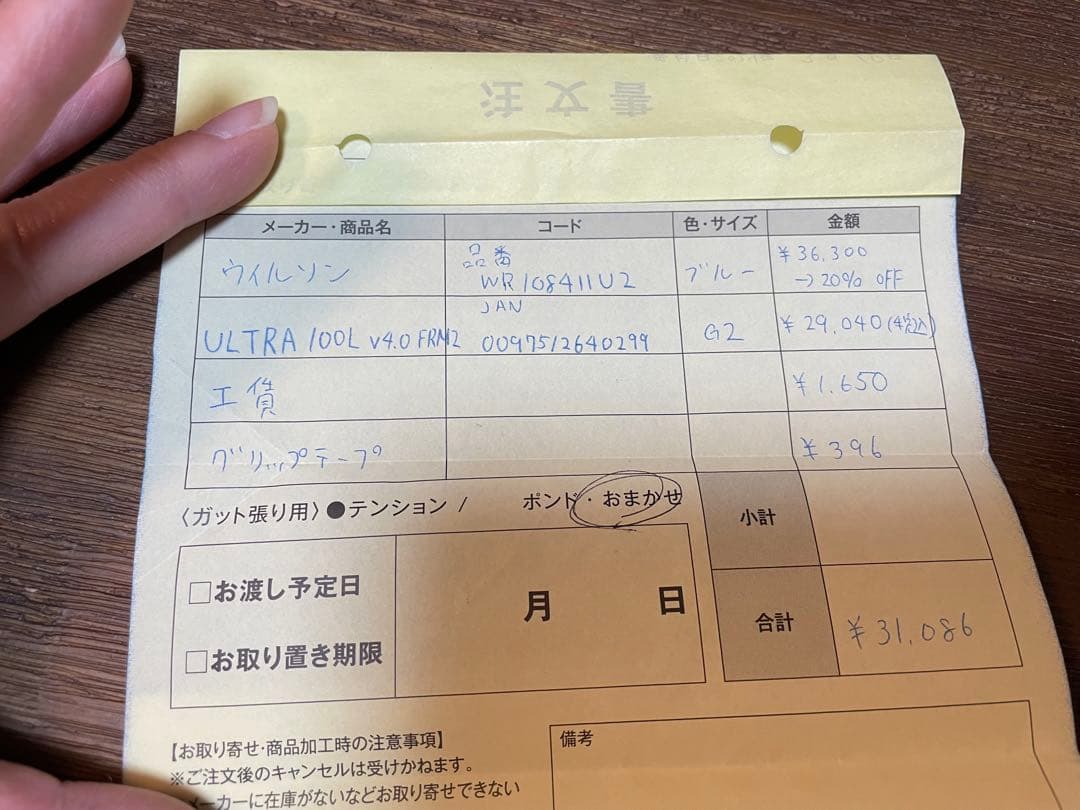 注文書
メーカー・商品名 コード 色・サイズ 金額
ウィルソン 品番 WR108411U2 ブルー ¥36,300 → 20% OFF
ULTRA 100L V4.0 FRM2 JAN 0097512640299 G2 ¥29,040(税込)
工賃 ¥1,650
グリップテープ ¥396
〈ガット張り用〉●テンション / ポンド・おまかせ
小計
□お渡し予定日 月 日
□お取り置き期限
合計 ¥31,086
【お取り寄せ・商品加工時の注意事項】
※ご注文後のキャンセルは受けかねます。
メーカーに在庫がないなどお取り寄せできない
備考